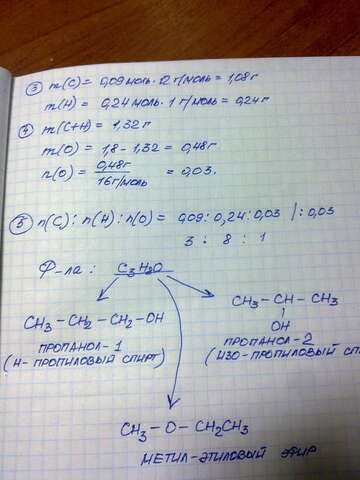 ③ m(C) = 0,09моль · 12 г/моль = 1,08г
m(H) = 0,24 моль · 1 г/моль = 0,24г
④ m(C+H) = 1,32г
m(O) = 1,8 - 1,32 = 0,48г
n(O) = 0,48г / 16г/моль = 0,03.
⑤ n(C) : n(H) : n(O) = 0,09 : 0,24 : 0,03 | : 0,03
3 : 8 : 1
Ф-ла : C₃H₈O
CH₃ - CH - CH₃
OH
CH₃ - CH₂ - CH₂ - OH
ПРОПАНОЛ - 1
(Н - ПРОПИЛОВЫЙ СПИРТ)
ПРОПАНОЛ - 2
(ИЗО - ПРОПИЛОВЫЙ СП
CH₃ - O - CH₂CH₃
МЕТИЛ - ЭТИЛОВЫЙ ЭФИР